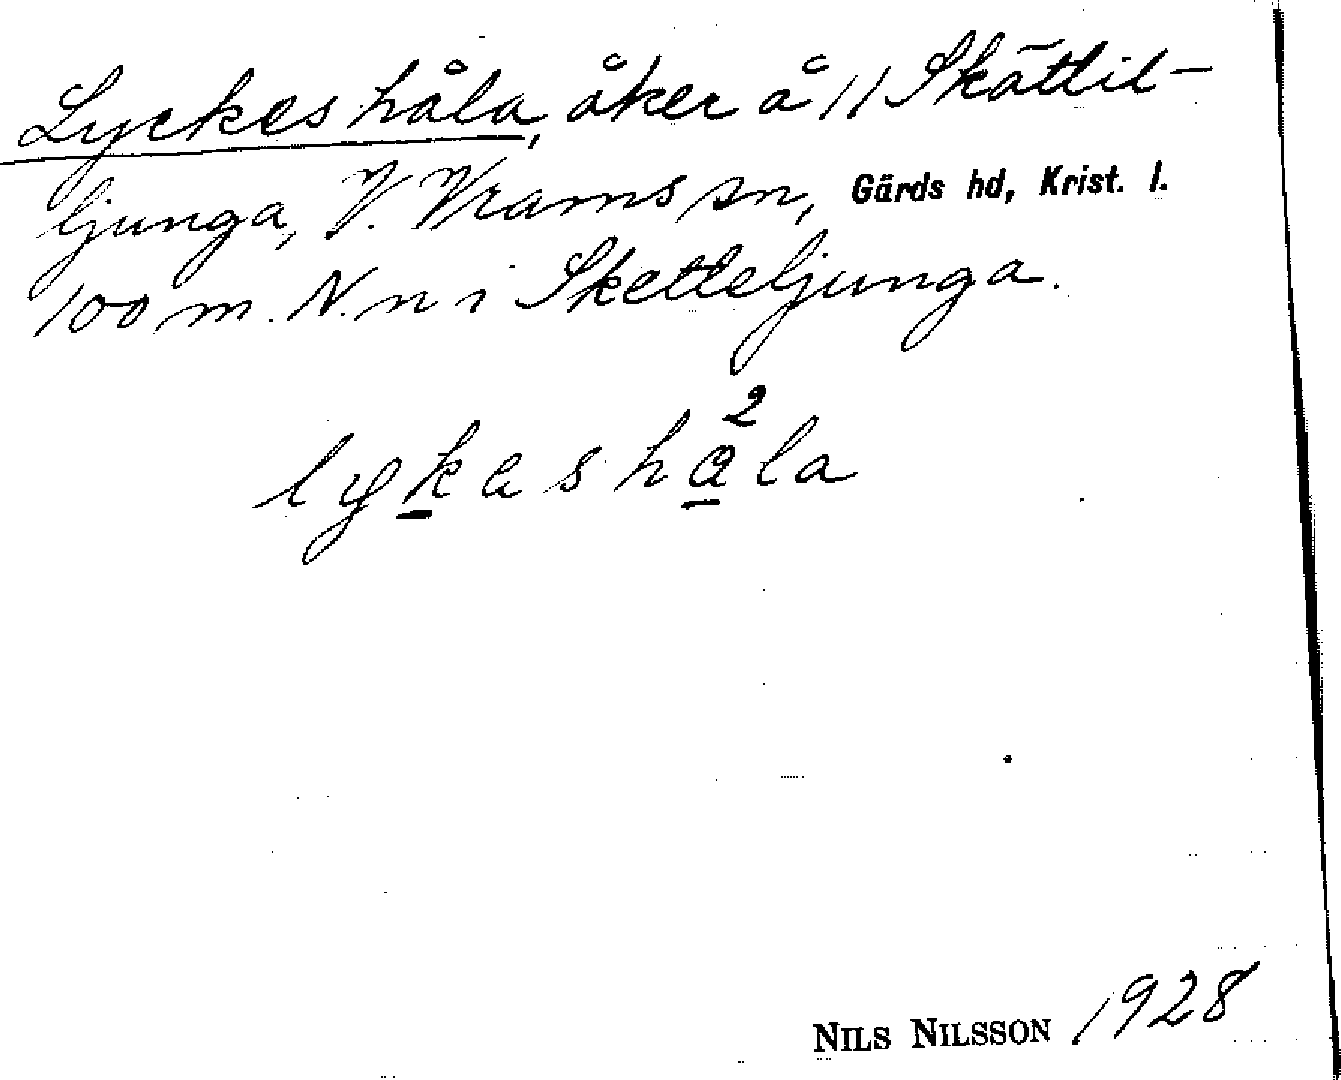 Lyckeshåla, åker å 11 Skättil-
ljunga, V. Vrams sn, Gärds hd, Krist. l.
100 m. N. n i Sketteljunga.
lykashåla
2
NILS NILSSON 1928